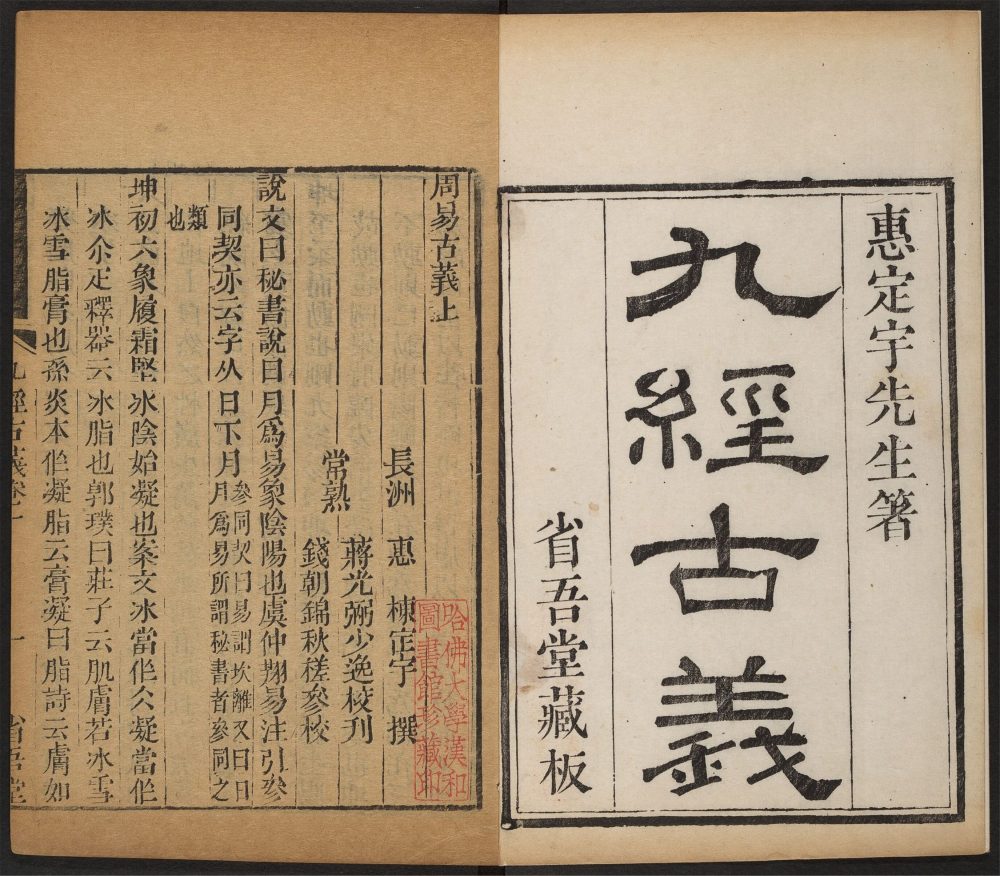 惠定宇先生箸
九經古義
省吾堂藏板
周易古義上
長洲 惠 棟定宇 撰
蔣光弼少逸校刋
常熟
錢朝錦秋槎參校
說文曰秘書說日月爲易象陰陽也虞仲翔易注引參
同契亦云字从日下月參同契曰易謂坎離又曰日
月爲易所謂秘書者參同之
類
也
坤初六象履霜堅冰陰始凝也案文冰當作仌凝當作
冰尒疋釋器云冰脂也郭璞曰莊子云肌膚若冰雪
冰雪脂膏也孫炎本作凝脂云膏凝曰脂詩云膚如
九經古義卷一
一
省吾堂
哈佛大學漢和
圖書館珍藏印